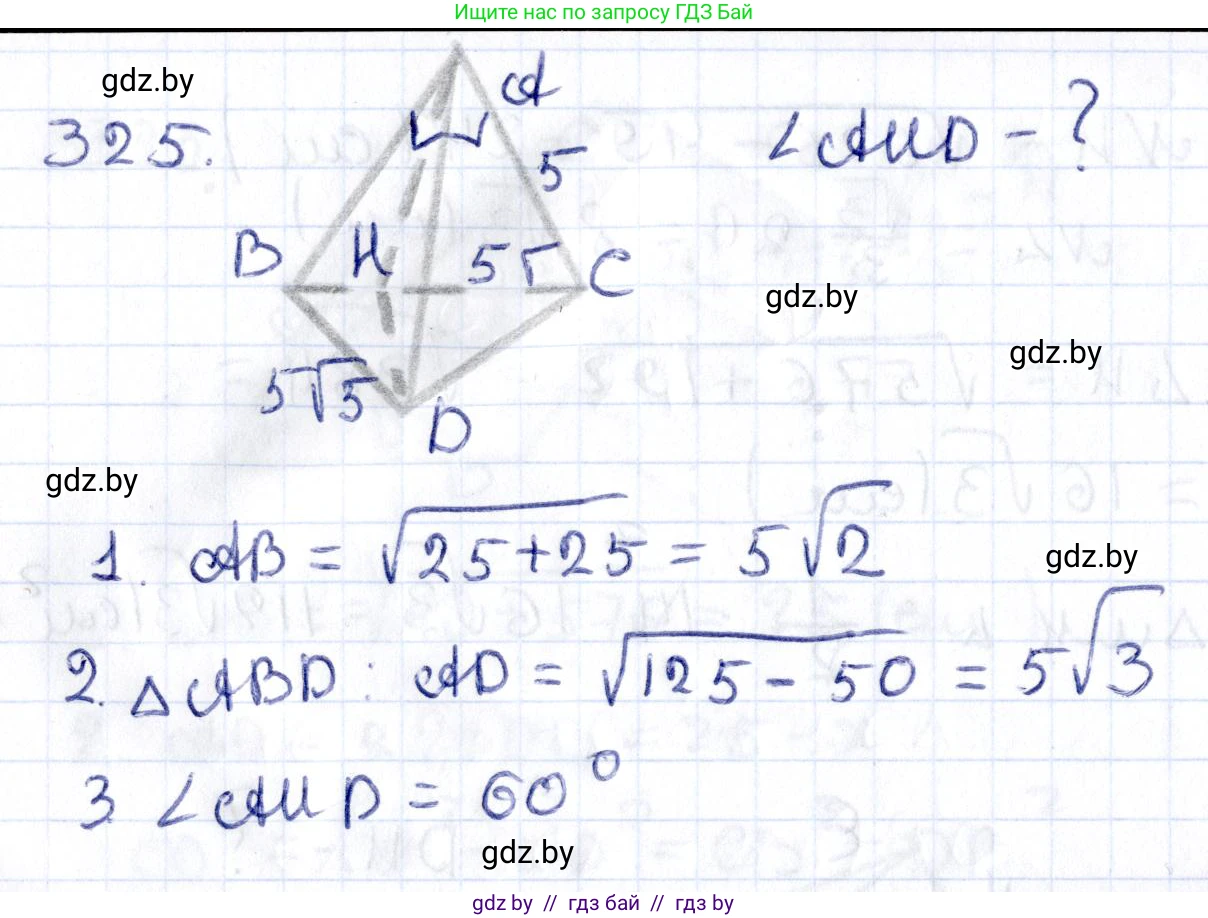 Ищите нас по запросу ГДЗ Бай
gdz.by
325.
A
5
∠AHD - ?
B H 5 C
gdz.by
gdz.by
5√5
D
gdz.by
1. AB = √25+25 = 5√2
gdz.by
2. △ABD: AD = √125-50 = 5√3
3. ∠AHD = 60°
gdz.by
gdz.by // гдз бай // gdz.by